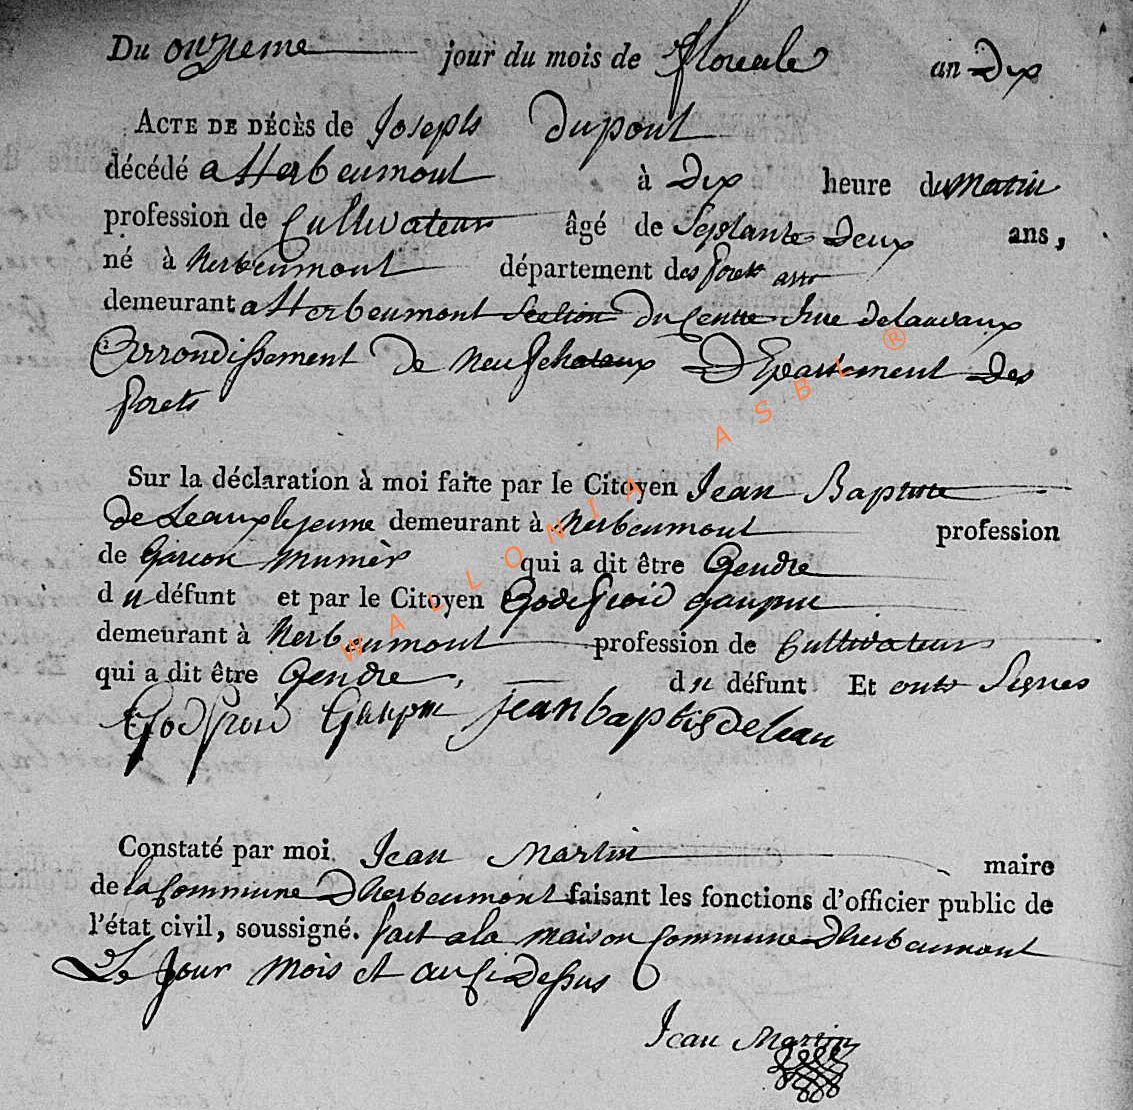 Du onzieme jour du mois de floreale an Dix
ACTE DE DÉCÈS de Joseph Dupont
décédé a Herbeumont à Dix heure du Matin
profession de Cultivateur âgé de Septante Deux ans,
né à Herbeumont département des forets
demeurant a Herbeumont Section Du Centre Rue
Arrondissement De Neufchateaux Departement Des
forets
Sur la déclaration à moi faite par le Citoyen Jean Baptiste
De Leaux le jeune demeurant à Herbeumont profession
de Garcon qui a dit être Gendre
du défunt et par le Citoyen Godefroid Gaupin
demeurant à Herbeumont profession de Cultivateur
qui a dit être Gendre, du défunt Et onts Signes
Godfroid Gaupin jean baptis deleau
Constaté par moi Jean Martin maire
de la Commune Dherbeumont faisant les fonctions d'officier public de
l'état civil, soussigné. fait a la maison Commune Dherbeumont
Le Jour Mois et an Ci Dessus
Jean Martin
WALLONIA ASBL ®